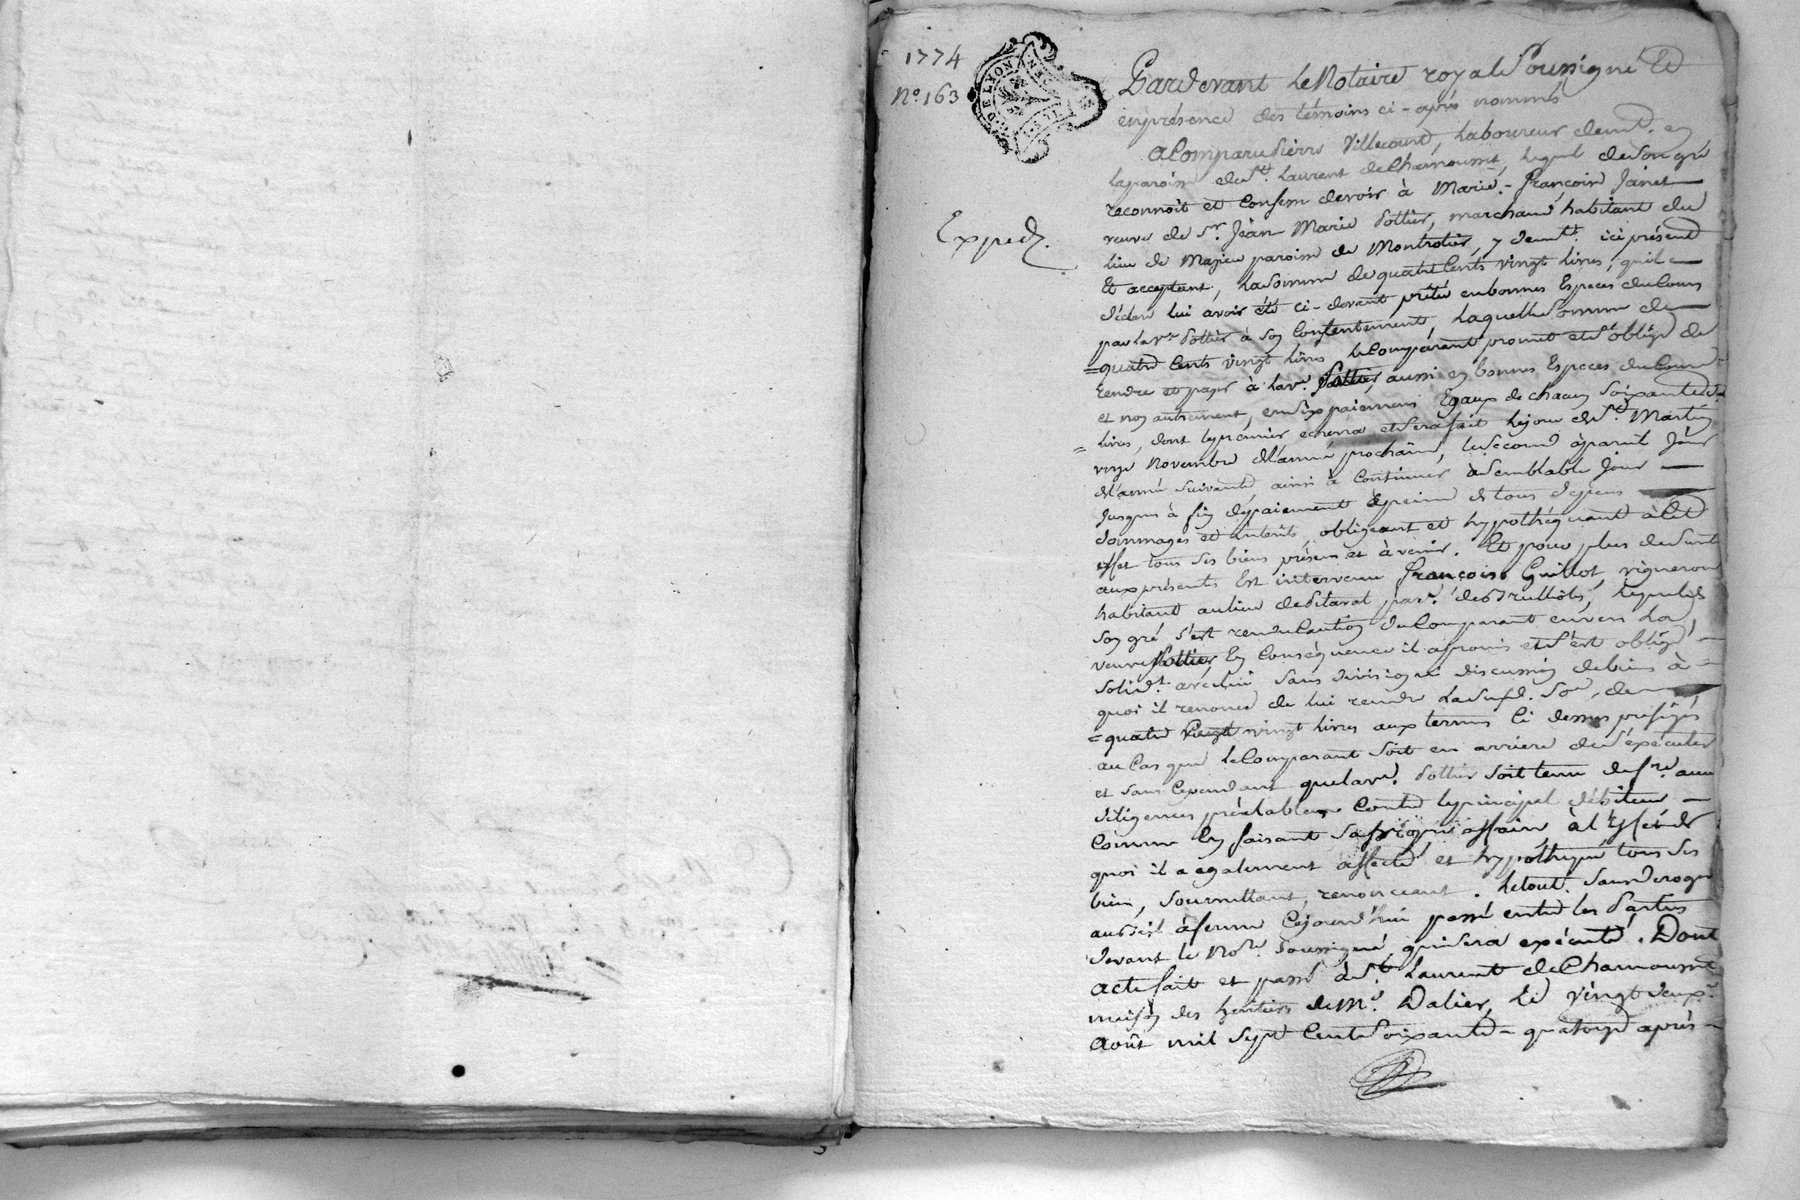 1774
N°. 163
DE LYON
GEN
Expéd.
Pardevant le Notaire royal Soussigné Et
en présence des témoins ci-après nommés
a Comparu Pierre Villecourt, laboureur demt. en
la paroisse de St. Laurent de Chamousset, lequel de son gré
reconnoit et Confesse devoir à Marie-françoise Jainet
veuve de Sr. Jean Marie Pottier, marchand habitant du
lieu de Majieu paroisse de Montrotier, y demt. ici présente
Et acceptant, la somme de quatre Cents vingt livres, qu'il
déclare lui avoir été ci-devant prêtée en bonnes Especes du Cours
par la ve. Pottier à son Contentement, laquelle Somme de
=quatre Cents vingt livres le Comparant promet et s'oblige de
rendre et payer à la ve. Pottier, aussi en bonnes Especes du Cours
et non autrement, en six paiemens Egaux de chacun soixante dix
=livres, dont le premier echerra et sera fait le jour de St. Martin
onze Novembre de l'année prochaine, le second à pareil Jour
de l'année suivante ainsi à Continuer à semblable Jour
Jusques à fin de paiement à peine de tous dépens
dommages et intérêts, obligeant et hypothéquant à cet
effet tous ses biens présens et à venir. Et pour plus de sureté
aux présentes Est intervenu François Guillot, vigneron
habitant au lieu de par. des Trullots, lequel de
son gré s'est rendu Caution du Comparant envers la
veuve Pottier, En Conséquence il a promis et s'est obligé
solidt. avec lui sans division ni discussion de biens à
quoi il renonce de lui rendre la susd. Soe. de
=quatre Cents vingt livres aux termes Ci dessus préfigés
au Cas que le Comparant soit en arriere de s'exécuter
et sans Cependant que la ve. Pottier soit tenue de fre. aucune
diligences préalables Contre le principal débiteur
Comme En faisant sa propre affaire à l'Effet de
quoi il a également affecté et hypothéqué tous ses
biens, soumettant, renonceant. le tout sans deroger
au à ferme Cejourd'hui passé entre les Parties
devant le Nore. Soussigné, qui sera exécuté. Dont
acte fait et passé à St. Laurent de Chamousset
maison des heritiers de Me. Dalier, le vingt deux
Août mil sept Cent soixante-quatorze après-